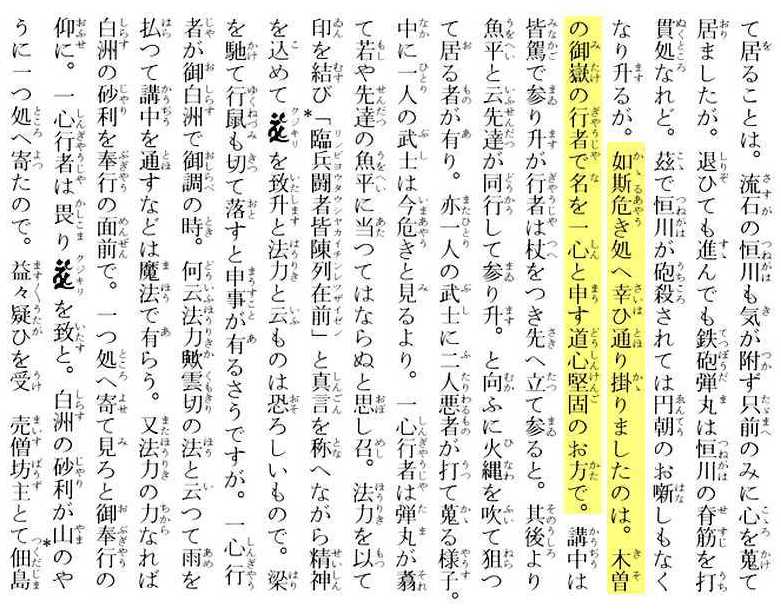 て居ることは。流石の恒川も気が附ず只前のみに心を蒐て
居ましたが。退ひても進んでも鉄砲弾丸は恒川の脊筋を打
貫処なれど。玆で恒川が砲殺されては円朝のお噺しもなく
なり升るが。如斯危き処へ幸ひ通り掛りましたのは。木曽
の御嶽の行者で名を一心と申す道心堅固のお方で。講中は
皆駕で参り升が行者は杖をつき先へ立て参ると。其後より
魚平と云先達が同行して参り升。と向ふに火縄を吹て狙つ
て居る者が有り。亦一人の武士に二人悪者が打て蒐る様子。
中に一人の武士は今危きと見るより。一心行者は弾丸が蕣
て若や先達の魚平に当つてはならぬと思し召。法力を以て
印を結び「臨兵闘者皆陳列在前」と真言を称へながら精神
を込めてを致升と法力と云ものは恐ろしいもので。梁
を馳て行鼠も切て落すと申事が有るさうですが。一心行
者が御白洲で御調の時。何云法力歟雲切の法と云つて雨を
払つて講中を通すなどは魔法で有らう。又法力の力なれば
白洲の砂利を奉行の面前で。一つ処へ寄て見ろと御奉行の
仰に。一心行者は畏りを致と。白洲の砂利が山のや
うに一つ処へ寄たので。益々疑ひを受売僧坊主とて佃島